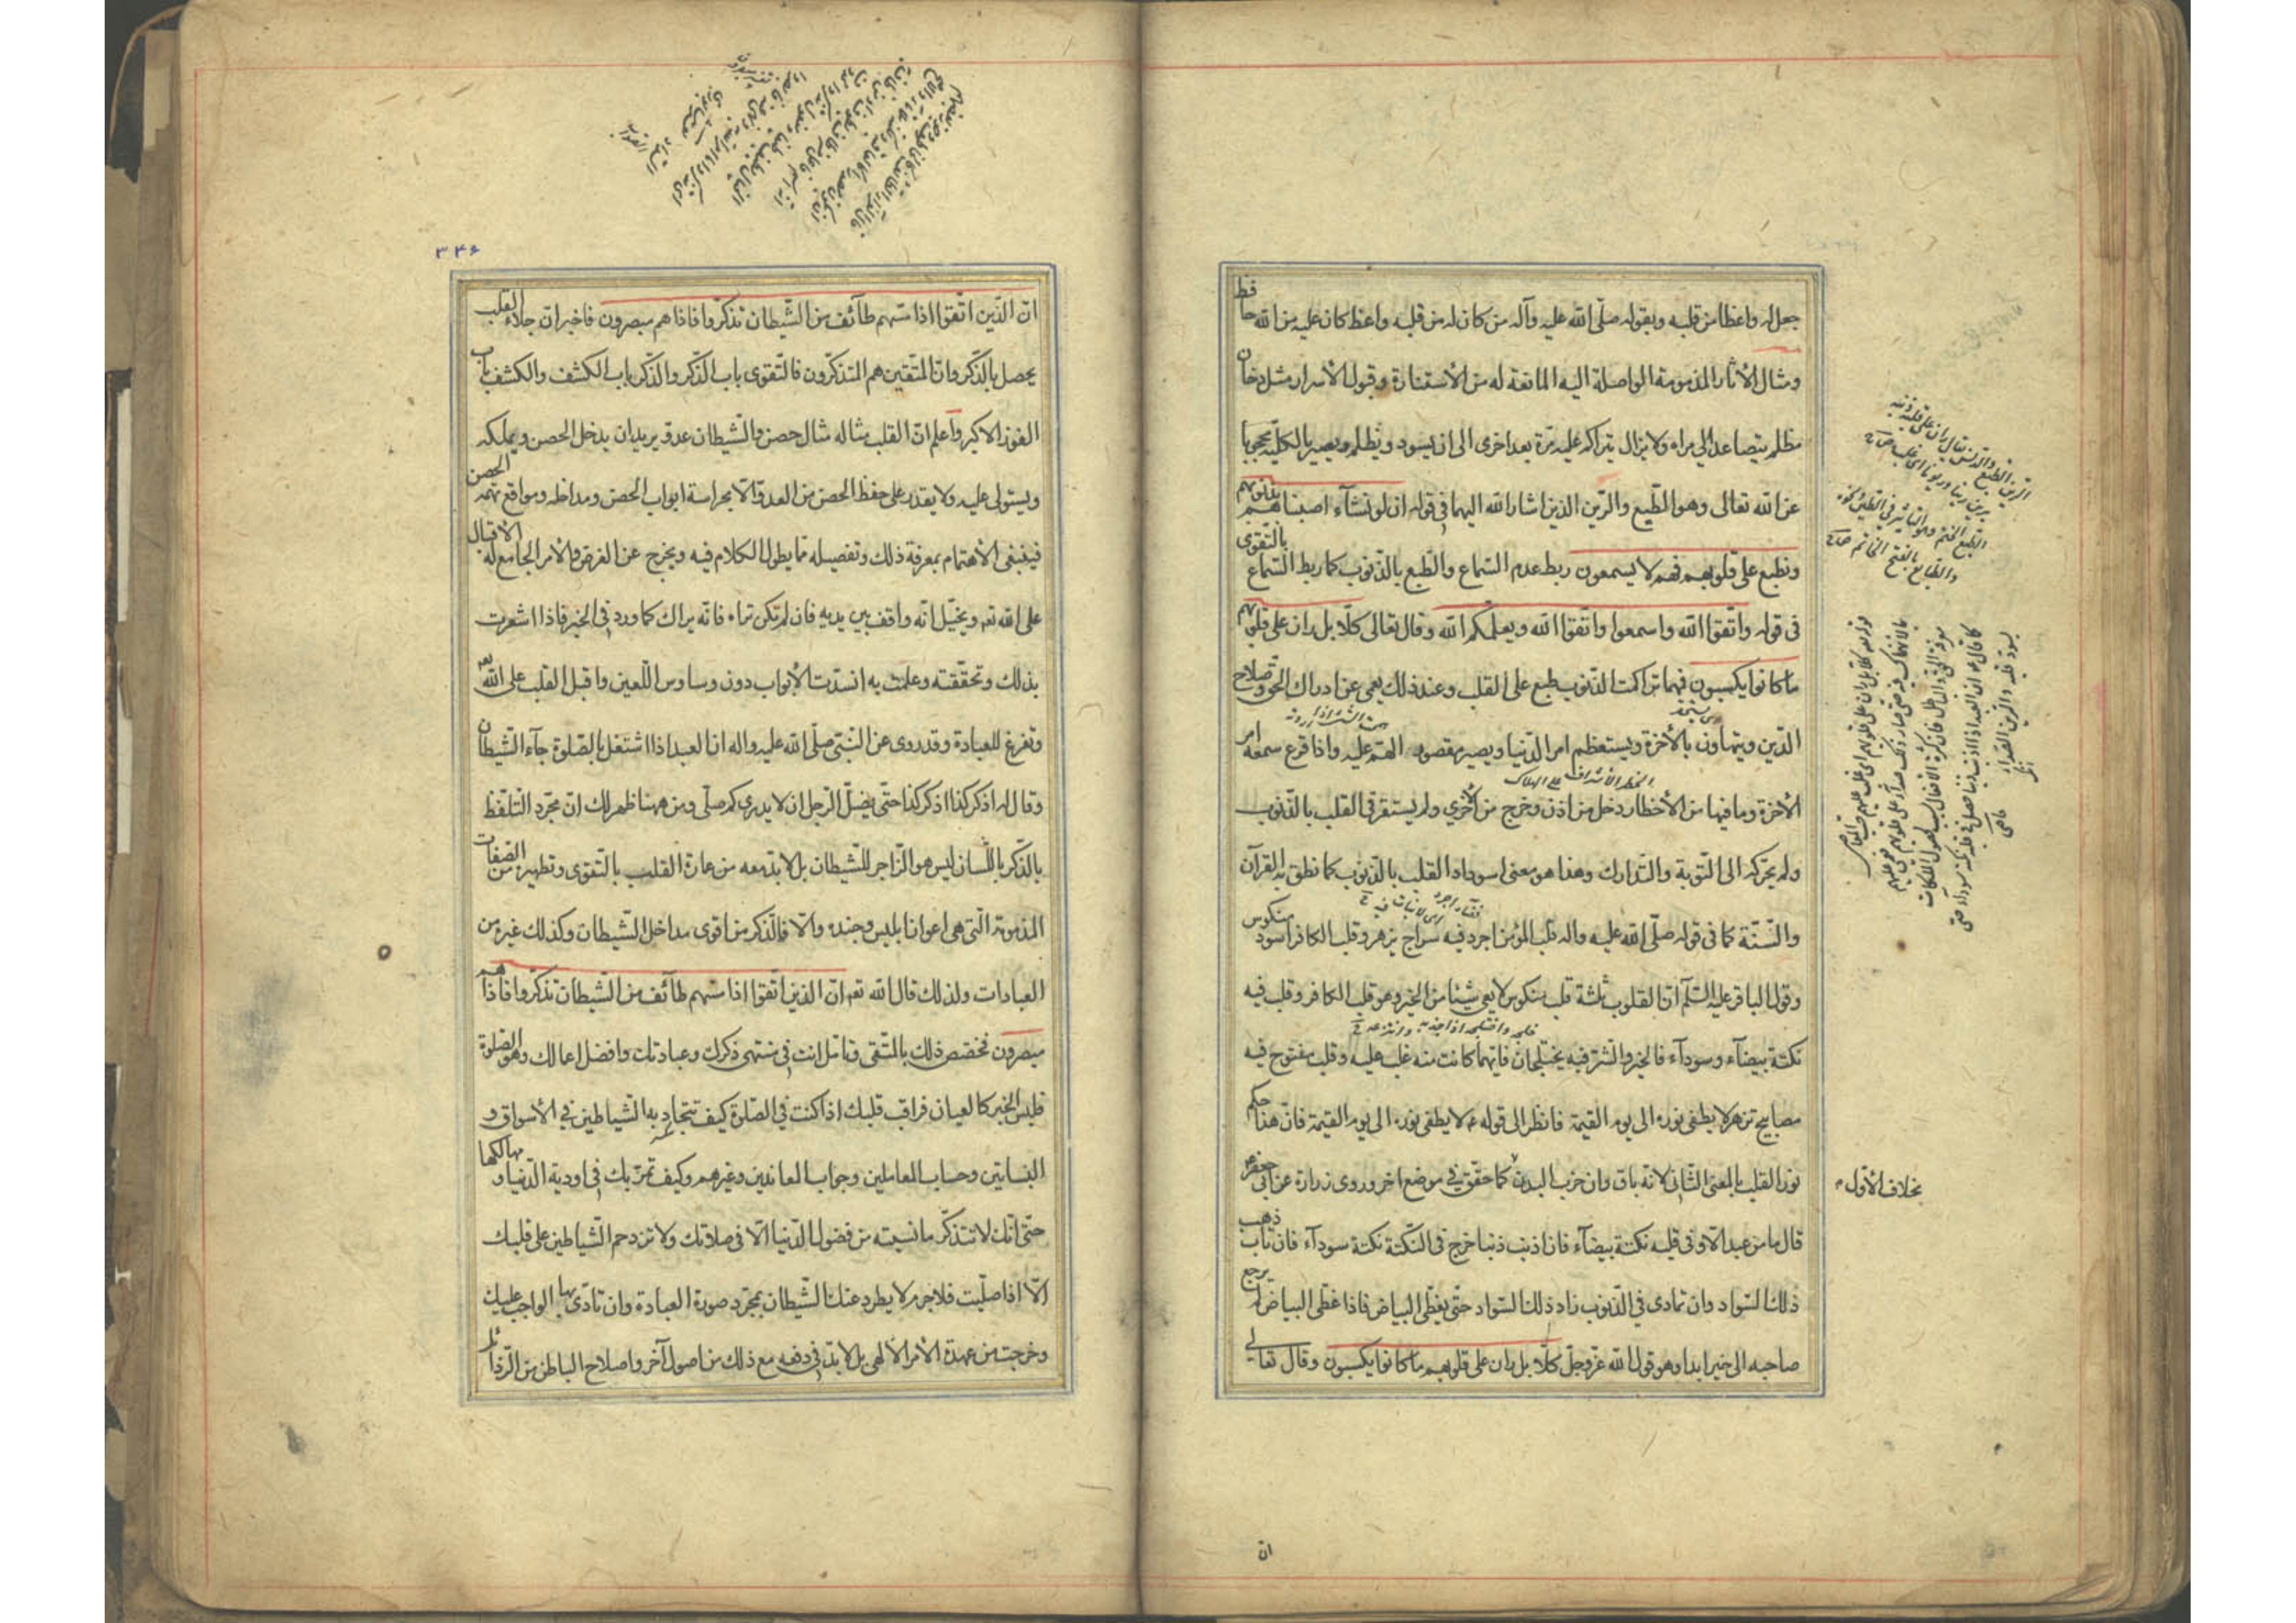 جعل له واعظا من قلبه وبقوله صلّى الله عليه وآله من كان له من قلبه واعظ كان عليه من الله حافظ
ومثال الأثار المذمومة الواصلة اليه المانعة له من الأستنارة وقبول الأسرار مثل دخان
مظلم يتصاعد الى مراه ولا يزال يتراكم عليه مرّة بعد اخرى الى ان يسود ويظلم ويصير بالكليّة محجوبا
عن الله تعالى وهو الطّبع والرّين الذين اشار الله اليهما فى قوله ان لو نشآء اصبناهم بذنوبهم
ونطبع على قلوبهم فهم لا يسمعون ربط عدم السّماع والطّبع بالذّنوب كما ربط السّماع بالتّقوى
فى قوله واتّقوا الله واسمعوا واتّقوا الله ويعلّمكم الله وقال تعالى كلّا بل ران على قلوبهم
ما كانوا يكسبون فمهما تراكمت الذّنوب طبع على القلب وعند ذلك يعمى عن ادراك الحق وصلاح
الدّين ويتهاون بالأخرة ويستعظم امر الدّنيا ويصير مقصور الهمّ عليه واذا قرع سمعه امر
الأخرة وما فيها من الأخطار دخل من اذن وخرج من اخرى ولم يستقر فى القلب بالذّنوب
ولم يحرّكه الى التّوبة والتّدارك وهذا هو معنى اسوداد القلب بالذّنوب كما نطق به القرآن
والسّنّة كما فى قوله صلّى الله عليه واله قلب المؤمن اجرد فيه سراج يزهر وقلب الكافر اسود منكوس
وقول الباقر عليه السّلم انّ القلوب ثلثة قلب منكوس لا يعى شيئا من الخير وهو قلب الكافر وقلب فيه
نكتة بيضآء وسودآء فالخير والشّر فيه يختلجان فايّهما كانت منه غلب عليه وقلب مفتوح فيه
مصابيح تزهر لا يطفى نوره الى يوم القيمة فانظر الى قوله ع لا يطفى نوره الى يوم القيمة فانّ هذا حكم
نور القلب بالمعنى الثّانى لانّه باق وان خرب البدن كما حقّق فى موضع اخر وروى زرارة عن ابى جعفر ع
بخلاف الأوّل
قال ما من عبد الّا وفى قلبه نكتة بيضآء فان اذنب ذنبا خرج فى النّكتة نكتة سودآء فان تاب ذهب
ذلك السّواد وان تمادى فى الذّنوب زاد ذلك السّواد حتّى يغطّى البياض فاذا غطّى البياض لم يرجع
صاحبه الى خير ابدا وهو قول الله عزّ وجلّ كلّا بل ران على قلوبهم ما كانوا يكسبون وقال تعالى
انّ
٣٤۶
انّ الّذين اتّقوا اذا مسّهم طآئف من الشّيطان تذكّروا فاذا هم مبصرون فاخبر انّ جلاء القلب
يحصل بالذّكر وانّ المتّقين هم المتذكّرون فالتّقوى باب الذّكر والذّكر باب الكشف والكشف باب
الفوز الاكبر واعلم انّ القلب مثاله مثال حصن والشّيطان عدوّ يريد ان يدخل الحصن ويملكه
ويستولى عليه ولا يقدر على حفظ الحصن من العدوّ الّا بحراسة ابواب الحصن ومداخله ومواقع ثلمه الحصن
فينبغى الأهتمام بمعرفة ذلك وتفصيله ممّا يطول الكلام فيه ويخرج عن الغرض والأمر الجامع له الأقبال
على الله تعه ويخيّل انّه واقف بين يديه فان لم تكن تراه فانّه يراك كما ورد فى الخبر فاذا اشعرت
بذلك وتحقّقته وعلمت به انسدّت الأبواب دون وساوس اللّعين واقبل القلب على الله تعه
وتفرغ للعبادة وقد روى عن النّبىّ صلّى الله عليه واله ان العبد اذا اشتغل بالصّلوة جآء الشّيطان
وقال له اذكر كذا اذكر كذا حتّى يضلّ الرّجل ان لا يدرى كم صلّى ومن ههنا ظهر لك انّ مجرّد التّلفّظ
بالذّكر باللّسان ليس هو الزّاجر للشّيطان بل لا بدّ معه من عمارة القلب بالتّقوى وتطهيره من الصّفات
المذمومة الّتى هى اعوان ابليس وجنده والّا فالذّكر من اقوى مداخل الشّيطان وكذلك غيره من
العبادات ولذلك قال الله تعه انّ الذين اتّقوا اذا مسّهم طآئف من الشّيطان تذكّروا فاذا هم
مبصرون فخصّص ذلك بالمتّقى وتامّل انت فى منتهى ذكرك وعبادتك وافضل اعمالك وهو الصّلوة
فليس الخبر كالعيان فراقب قلبك اذا كنت فى الصّلوة كيف تتجاذبه الشّياطين فى الأسواق و
البساتين وحساب المعاملين وجواب المعاندين وغيرهم وكيف تمرّ بك فى اودية الدّنيا و مهالكها
حتّى انّك لا تتذكّر ما نسيته من فضول الدّنيا الّا فى صلاتك ولا تزدحم الشّياطين على قلبك
الّا اذا صلّيت فلا جرم لا يطرد عنك الشّيطان بمجرّد صورة العبادة وان تادّى بها الواجب عليك
وخرجت من عهدة الأمر الألهى بل لا بدّ فى دفعه مع ذلك من اصول آخر واصلاح الباطن من الرّذائل